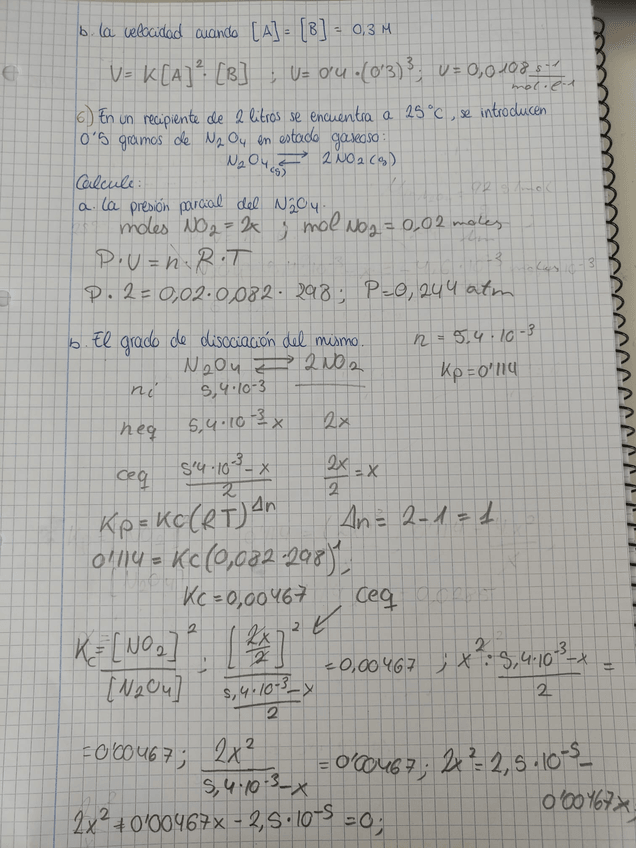 b. La velocidad cuando [A] = [B] = 0,3 M
V = K[A]²·[B] ; V = 0'4·(0'3)³; V = 0,0108 s⁻¹/mol·l⁻¹
6.) En un recipiente de 2 litros se encuentra a 25°C, se introducen
0'5 gramos de N₂O₄ en estado gaseoso:
N₂O₄(g) ⇄ 2NO₂(g)
Calcule:
a. La presión parcial del N₂O₄.
moles NO₂ = 2x ; mol NO₂ = 0,02 moles
P·V = n·R·T
P·2 = 0,02·0,082·298; P = 0,244 atm
b. El grado de disociación del mismo. n = 5,4·10⁻³
N₂O₄ ⇄ 2NO₂ Kp = 0'114
ni 5,4·10⁻³ ———
neq 5,4·10⁻³-x 2x
ceq 5'4·10⁻³-x/2 2x/2 = x
Kp = Kc(RT)^Δn Δn = 2-1 = 1
0'114 = Kc(0,082·298)¹;
Kc = 0,00467 ceq
Kc = [NO₂]²/[N₂O₄] ; [2x/2]²/(5,4·10⁻³-x/2) = 0,00467 ; x² : 5,4·10⁻³-x/2 =
= 0'00467; 2x²/5,4·10⁻³-x = 0'00467; 2x² = 2,5·10⁻⁵-
0'00467x;
2x² + 0'00467x - 2,5·10⁻⁵ = 0;